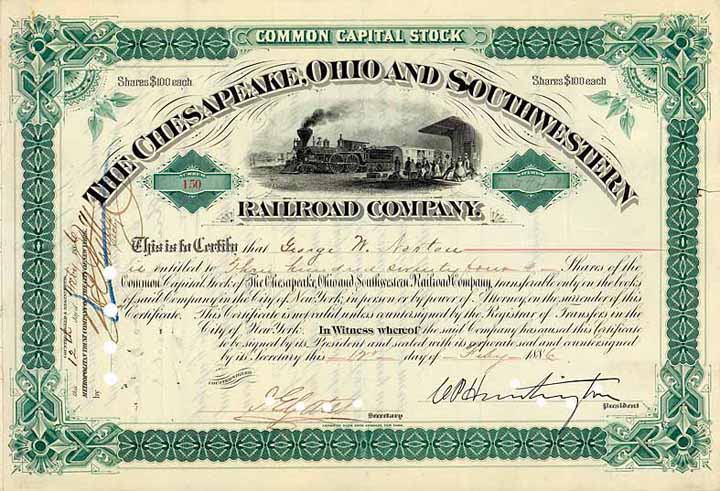 COMMON CAPITAL STOCK
Shares $100 each
Shares $100 each
THE CHESAPEAKE, OHIO AND SOUTHWESTERN
NUMBER
150
RAILROAD COMPANY.
This is to Certify that George W. Norton
is entitled to Three hundred seventy four Shares of the
Common Capital Stock of The Chesapeake, Ohio and Southwestern Railroad Company, transferable only on the books
of said Company in the City of New York, in person or by power of Attorney, on the surrender of this
Certificate. This Certificate is not valid unless countersigned by the Registrar of Transfers in the
City of New York. In Witness whereof the said Company has caused this Certificate
to be signed by its President and sealed with its corporate seal and countersigned
by its Secretary this 12th day of Feby 1886
COUNTERSIGNED
Secretary
C P Huntington
President
this 12th day of Feby 1886
METROPOLITAN TRUST COMPANY
by